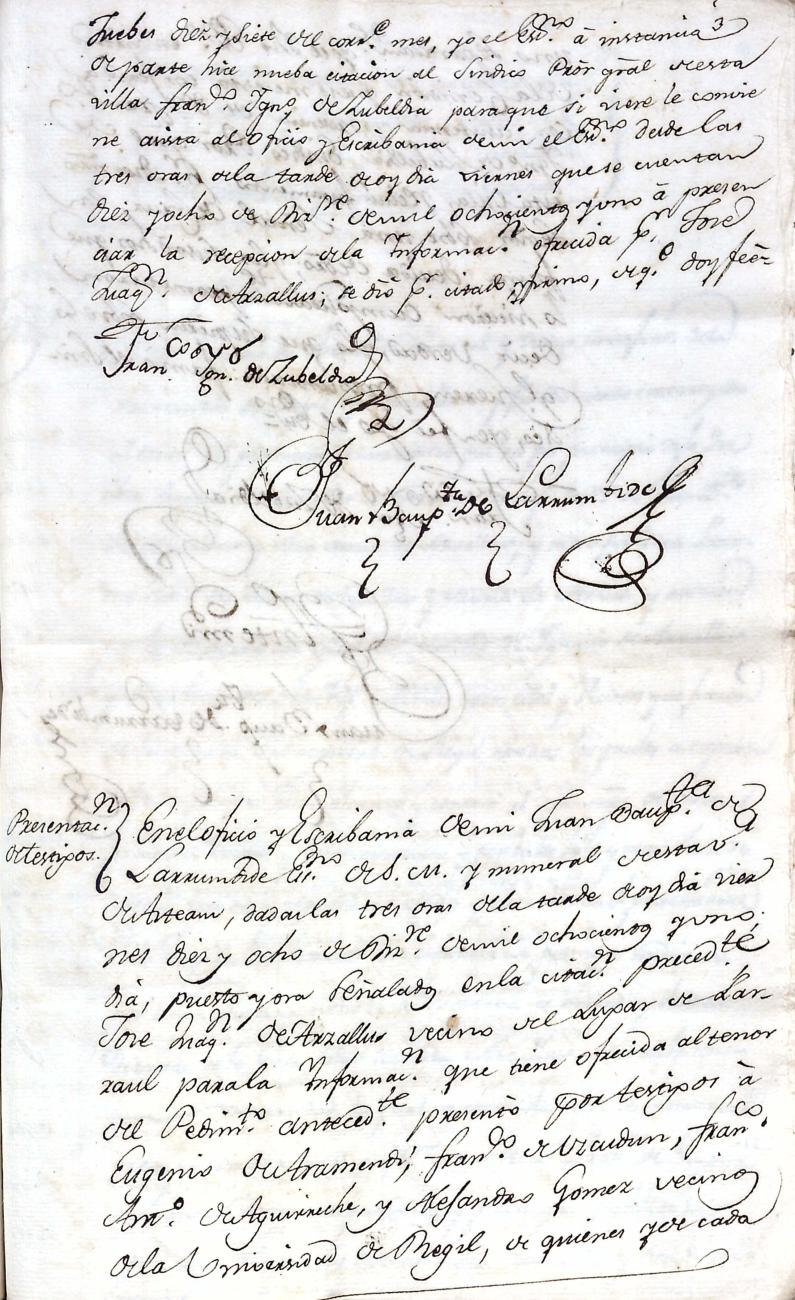 3
Juebes diez y siete del corr.e mes, yo el Es.no à instancia
de parte hice nueba citacion al Sindico Pror gral de esta
villa Fran.co Ygn.o de Zubeldia para que si viere le convie
ne asista al oficio y Escribania de mi el Es.no desde las
tres oras de la tarde de oy dia viernes que se cuentan
diez y ocho de de mil ochocientos y uno à presen
ciar la recepcion de la Informac.n ofrecida p.r Jose
Juaq.n de Arzallus; se dió p.r citado y firmo, de q.e doy feè=
Fran.co Ygn.o de Zubeldia
Juan Baup.ta de Larrumbide
Presentac.n
de testigos.
En el oficio y Escribania de mi Juan Baup.ta de
Larrumbide Es.no de S. M. y numeral de esta v.a
de Asteasu, dadas las tres oras de la tarde de oy dia vier
nes diez y ocho de de mil ochocientos y uno,
dia, puesto y ora señalados en la citac.n preced.te
Jose Juaq.n de Arzallus vecino del Lugar de Lar-
raul para la Informac.n que tiene ofrecida al tenor
del Pedim.to anteced.te presentò por testigos à
Eugenio de Aramendi, Fran.co de Uzcudun, Fran.co
Ant.o de Aguirreche, y Alejandro Gomez vecinos
de la Universidad de Regil, de quienes y de cada